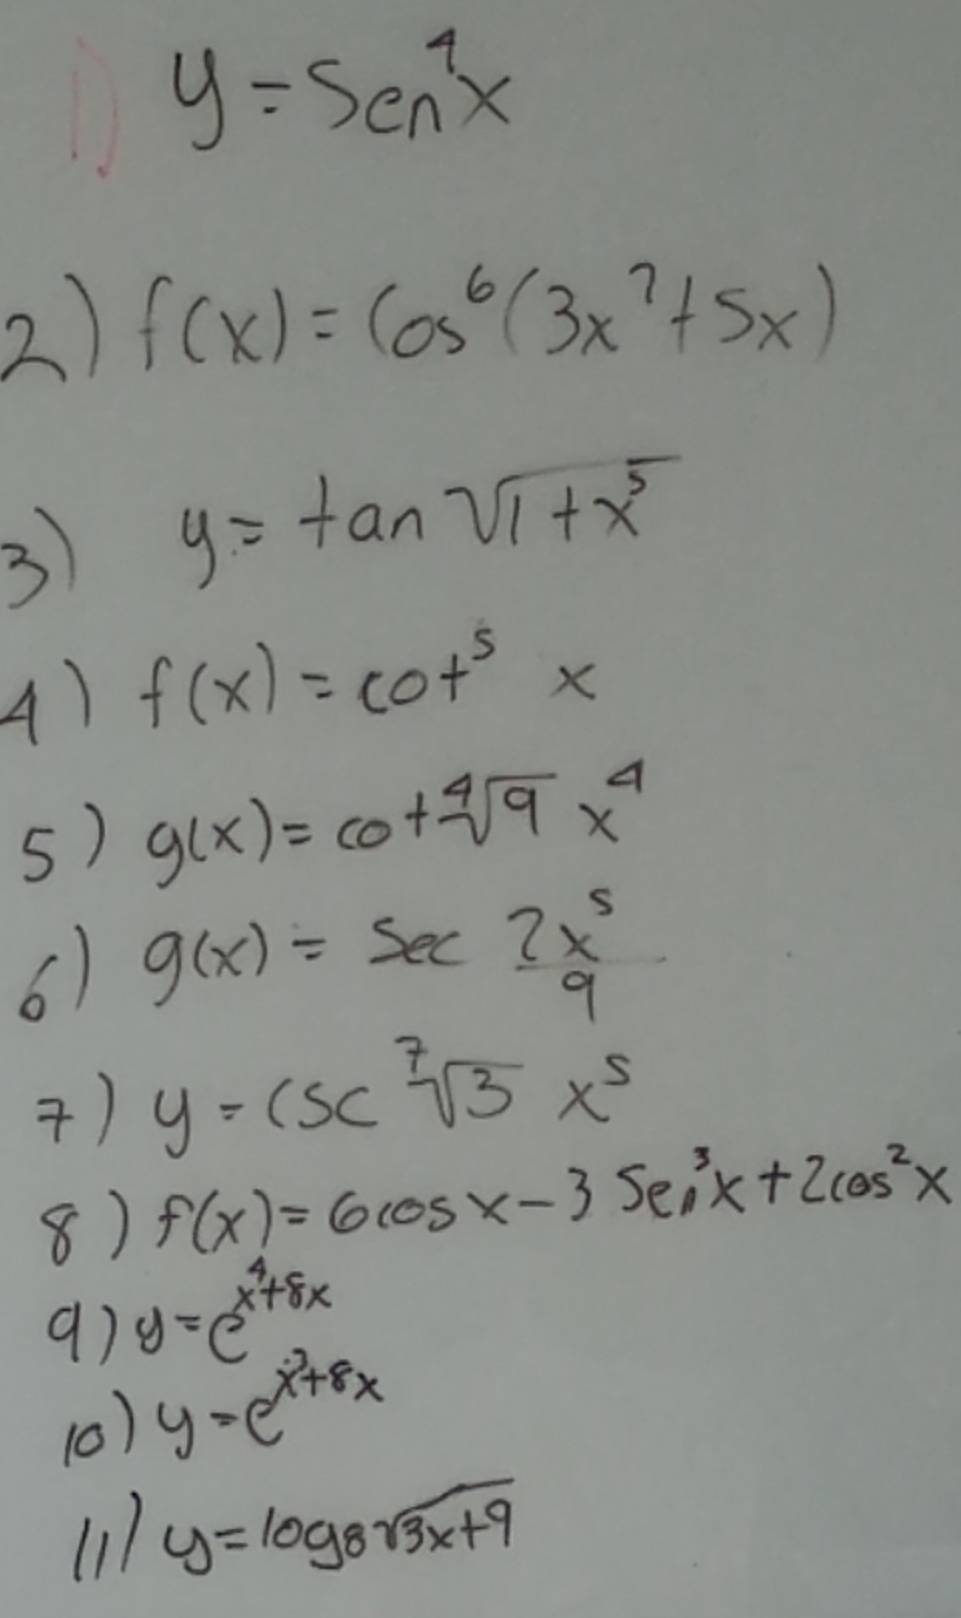 1) y = Sen⁴x
2) f(x) = Cos⁶(3x⁷+5x)
3) y = tan √(1+x⁵)
4) f(x) = cot⁵ x
5) g(x) = cot ∜9 x⁴
6) g(x) = Sec 2x⁵/9
7) y = CSC ⁷√3 x⁵
8) f(x) = 6cosx - 3 Sen³x + 2cos²x
9) y = e^x⁴+8x
10) y = e^x³+8x
11) y = log₈√(3x+9)